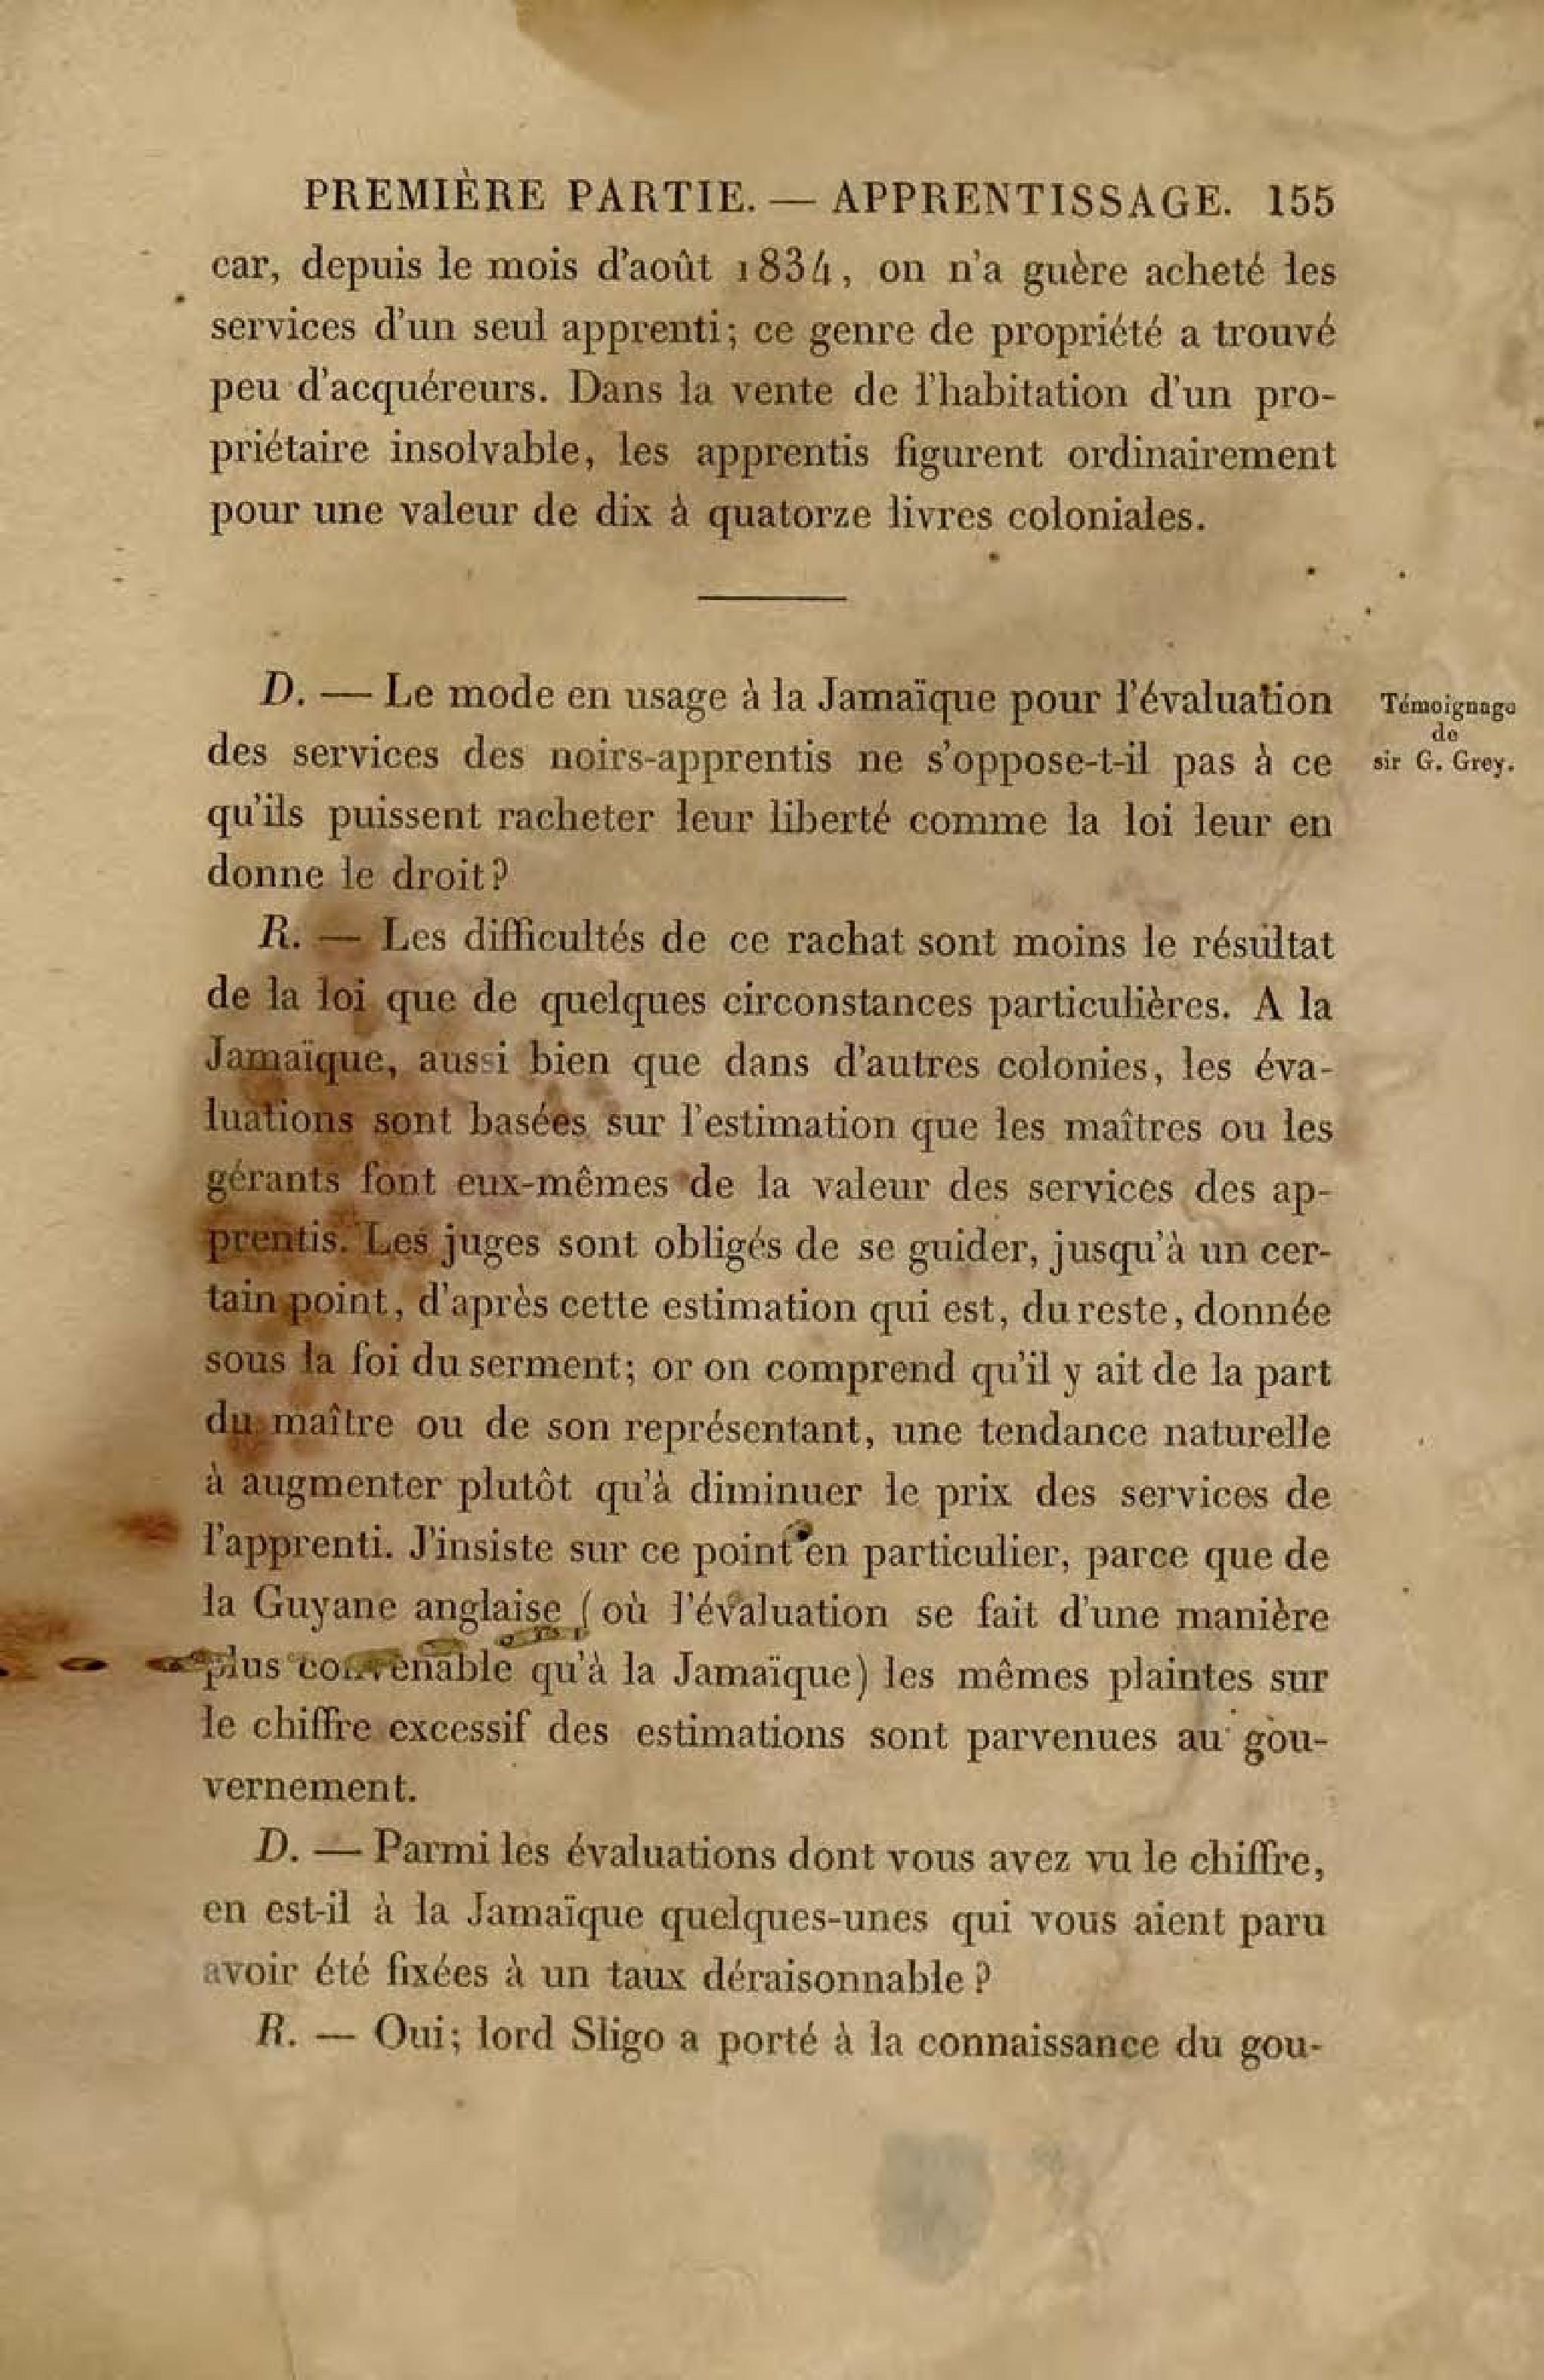 PREMIÈRE PARTIE. — APPRENTISSAGE. 155
car, depuis le mois d'août 1834, on n'a guère acheté les
services d'un seul apprenti; ce genre de propriété a trouvé
peu d'acquéreurs. Dans la vente de l'habitation d'un pro-
priétaire insolvable, les apprentis figurent ordinairement
pour une valeur de dix à quatorze livres coloniales.
D. — Le mode en usage à la Jamaïque pour l'évaluation
des services des noirs-apprentis ne s'oppose-t-il pas à ce
qu'ils puissent racheter leur liberté comme la loi leur en
donne le droit?
Témoignage
de
sir G. Grey.
R. — Les difficultés de ce rachat sont moins le résultat
de la loi que de quelques circonstances particulières. A la
Jamaïque, aussi bien que dans d'autres colonies, les éva-
luations sont basées sur l'estimation que les maîtres ou les
gérants font eux-mêmes de la valeur des services des ap-
prentis. Les juges sont obligés de se guider, jusqu'à un cer-
tain point, d'après cette estimation qui est, du reste, donnée
sous la foi du serment; or on comprend qu'il y ait de la part
du maître ou de son représentant, une tendance naturelle
à augmenter plutôt qu'à diminuer le prix des services de
l'apprenti. J'insiste sur ce point en particulier, parce que de
la Guyane anglaise (où l'évaluation se fait d'une manière
plus convenable qu'à la Jamaïque) les mêmes plaintes sur
le chiffre excessif des estimations sont parvenues au gou-
vernement.
D. — Parmi les évaluations dont vous avez vu le chiffre,
en est-il à la Jamaïque quelques-unes qui vous aient paru
avoir été fixées à un taux déraisonnable?
R. — Oui; lord Sligo a porté à la connaissance du gou-